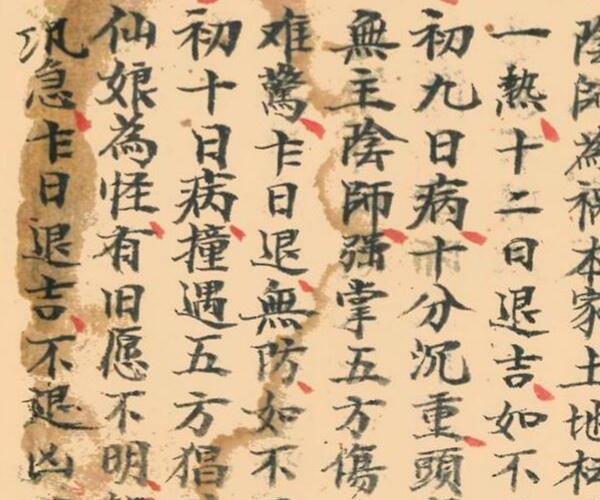 陰師為禍本家土地
一熱十二日退吉如不
初九日病十分沉重頭
無主陰師强掌五方傷
难驚卡日退無防如不
初十日病撞遇五方猖
仙娘為怪有旧愿不明
急卡日退吉不退凶